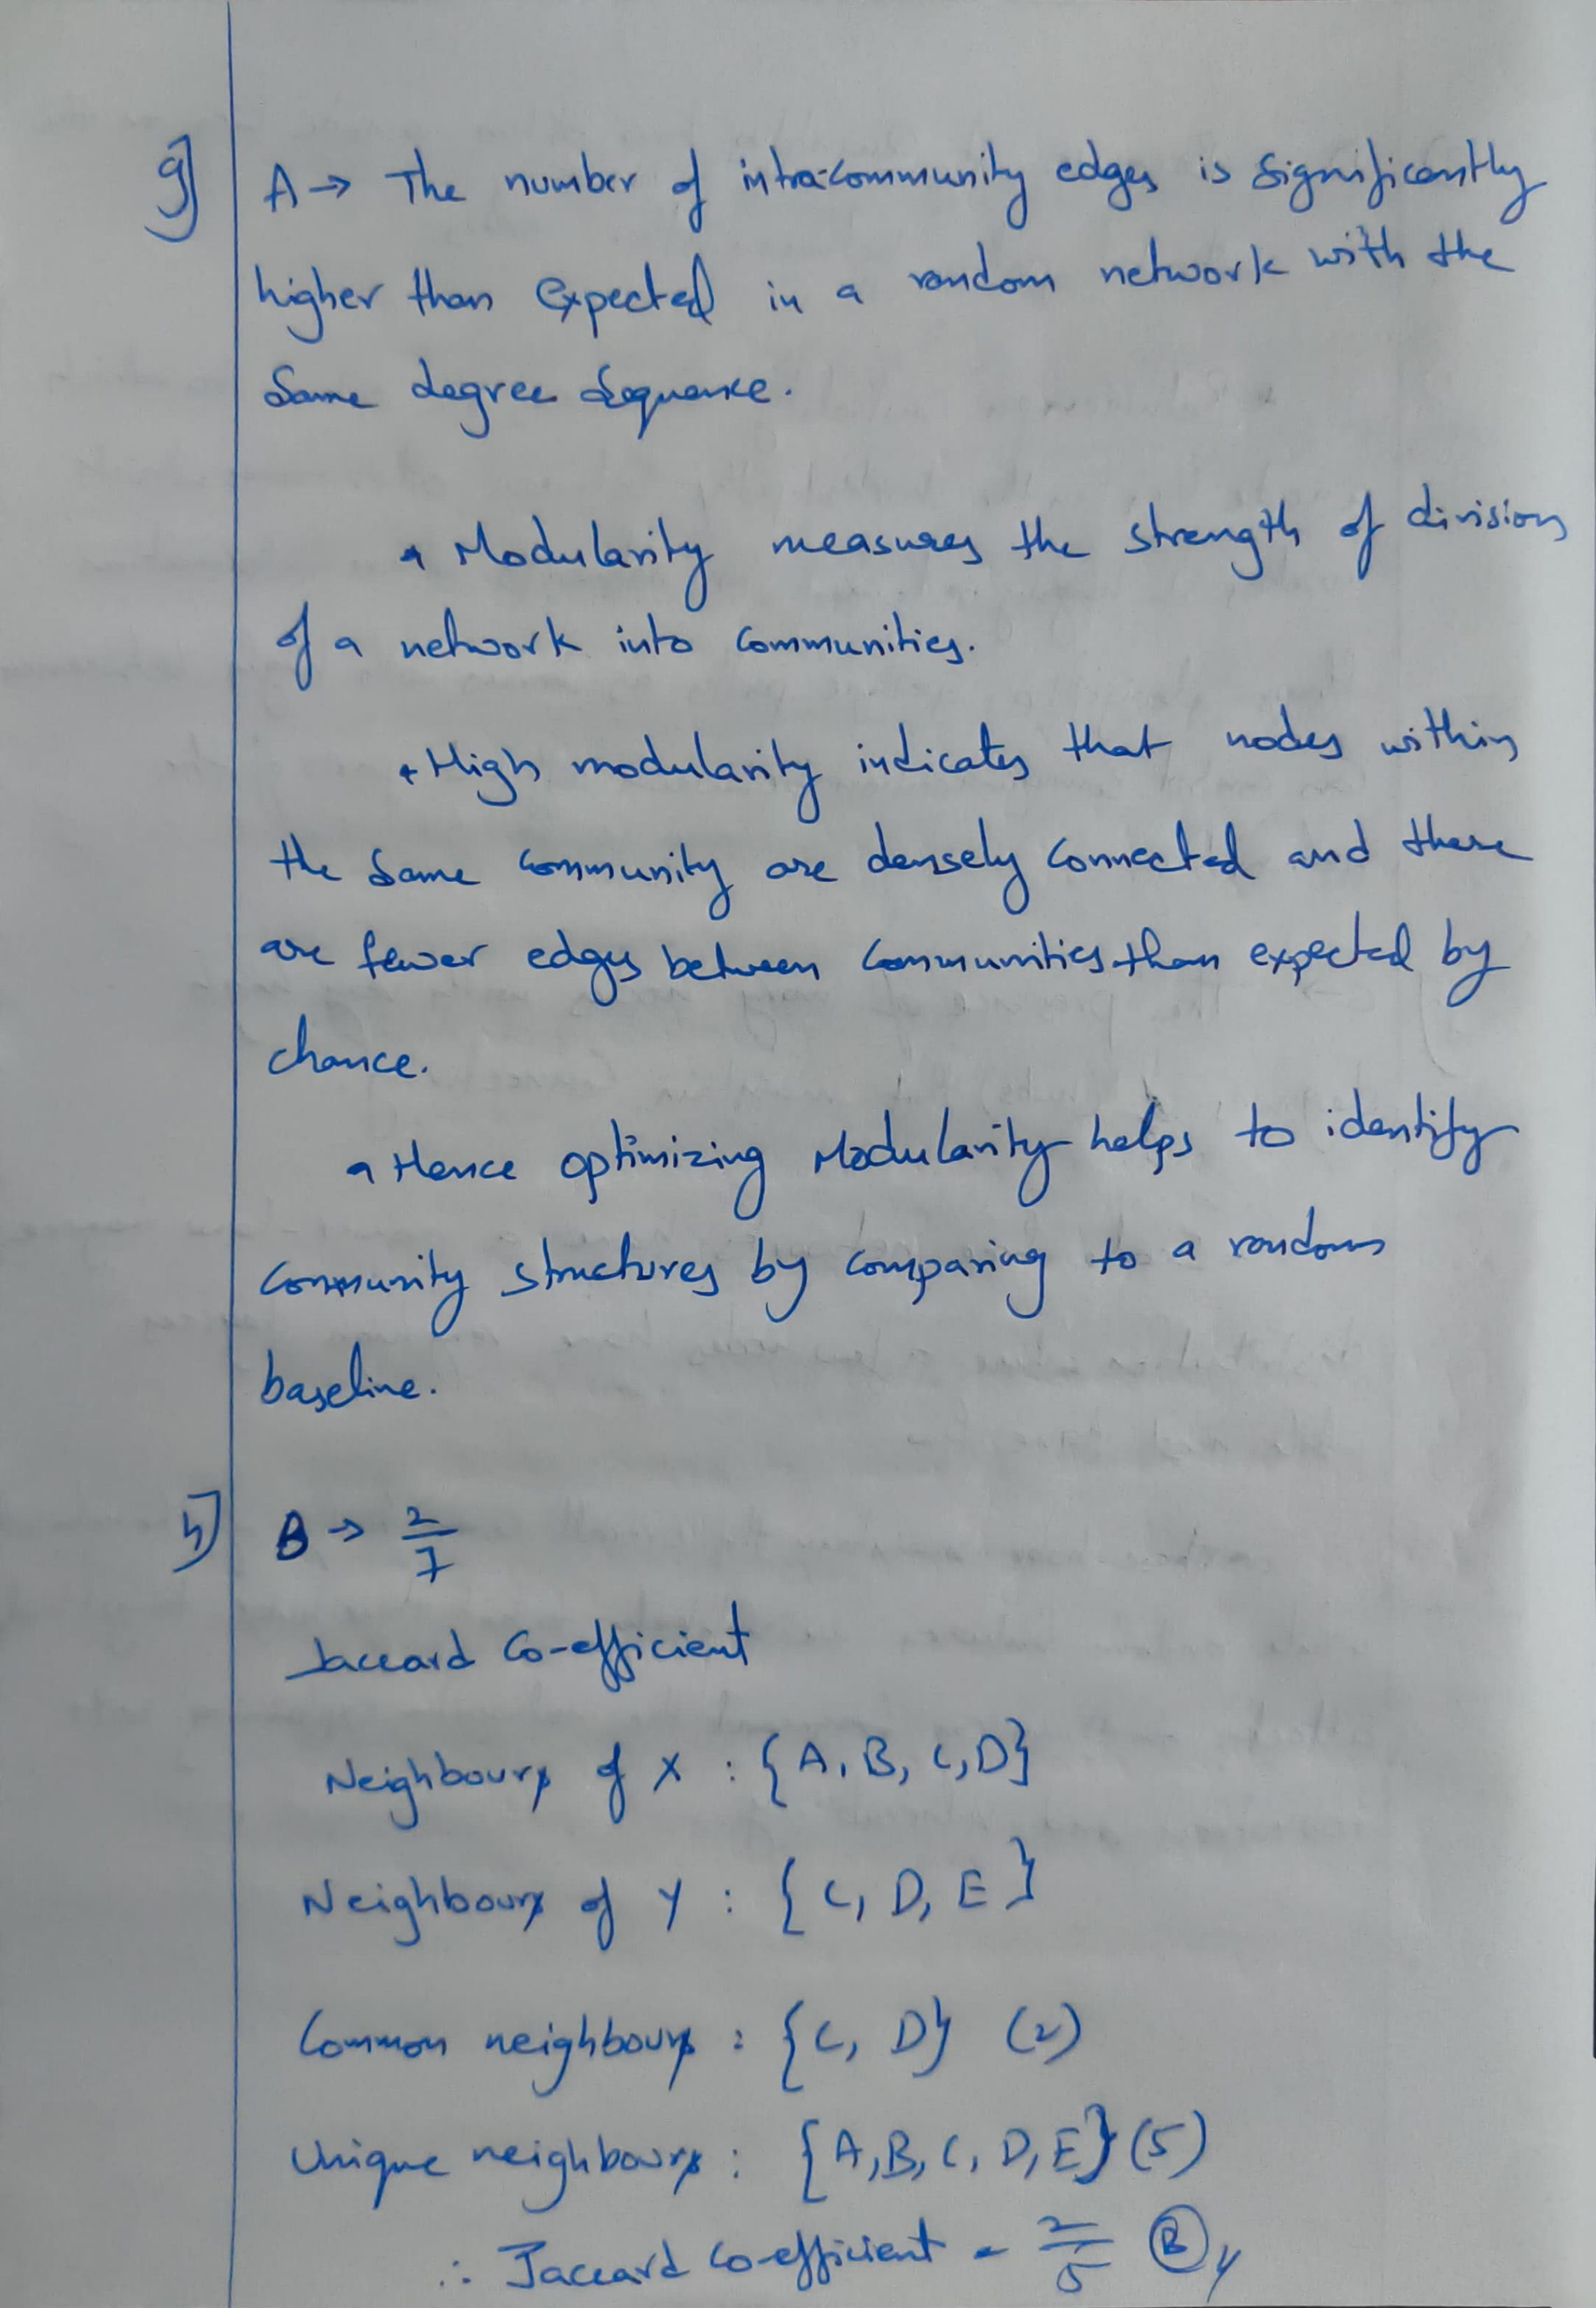 g] A → The number of intra-community edges is significantly
higher than expected in a random network with the
same degree sequence.
• Modularity measures the strength of division
of a network into communities.
• High modularity indicates that nodes within
the same community are densely connected and there
are fewer edges between communities than expected by
chance.
• Hence optimizing Modularity helps to identify
community structures by comparing to a random
baseline.
h] B → 2/7
Jaccard Co-efficient
Neighbours of X : {A, B, C, D}
Neighbours of Y : {C, D, E}
Common neighbours : {C, D} (2)
Unique neighbours : {A, B, C, D, E} (5)
∴ Jaccard Co-efficient = 2/5 (B)